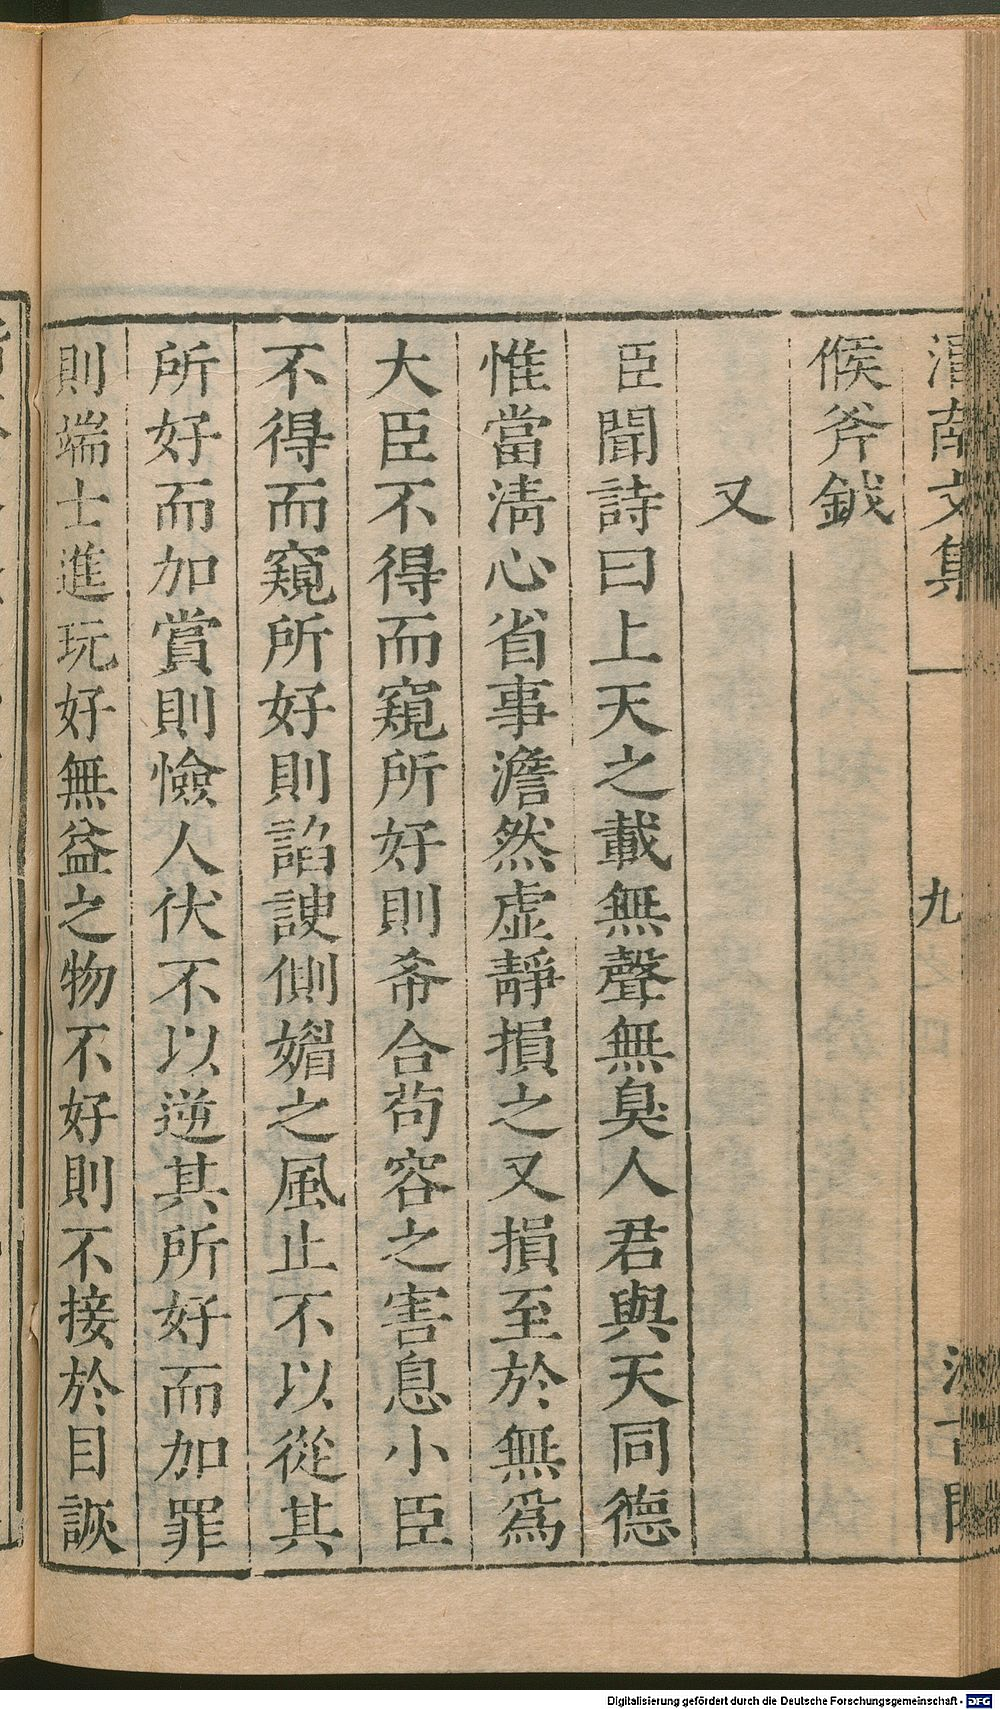 渭南文集 九 汲古閣
候斧鉞
又
臣聞詩曰上天之載無聲無臭人君與天同德
惟當淸心省事澹然虛靜損之又損至於無爲
大臣不得而窺所好則希合苟容之害息小臣
不得而窺所好則諂諛側媚之風止不以從其
所好而加賞則憸人伏不以逆其所好而加罪
則端士進玩好無益之物不好則不接於目詼
Digitalisierung gefördert durch die Deutsche Forschungsgemeinschaft - DFG